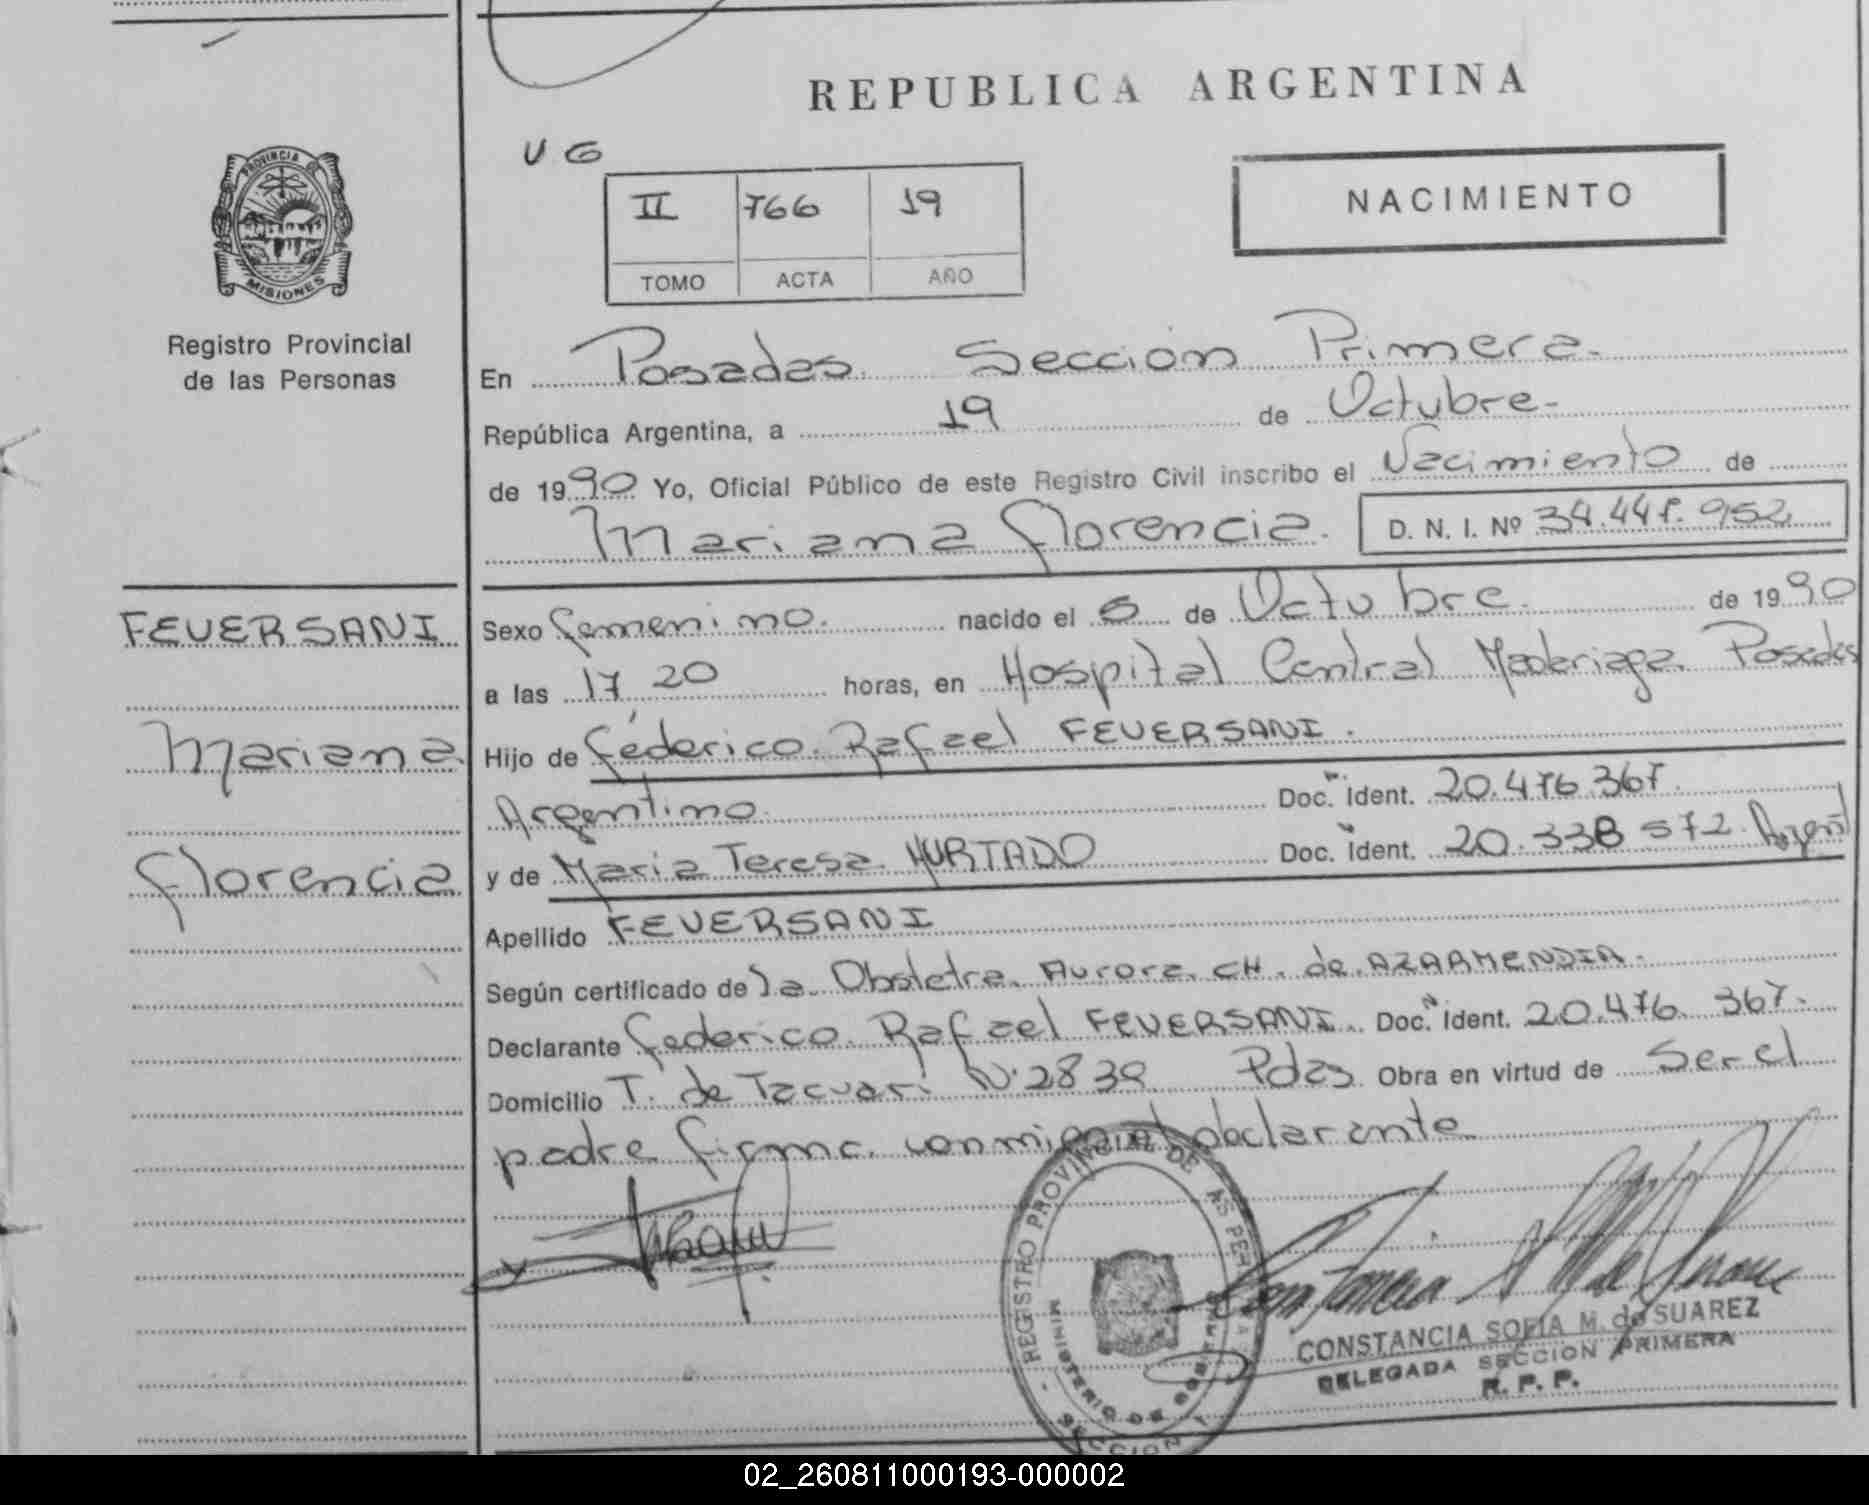 REPUBLICA ARGENTINA
U G
NACIMIENTO
II 766 19
TOMO ACTA AÑO
PROVINCIA DE
MISIONES
Registro Provincial
de las Personas
En Posadas Sección Primera.
República Argentina, a 19 de Octubre-
de 1990 Yo, Oficial Público de este Registro Civil inscribo el Nacimiento de
Mariana Florencia. D. N. I. Nº 34.448.952
FEVERSANI
Mariana
Florencia
Sexo femenino. nacido el 5 de Octubre. de 1990
a las 17 20 horas, en Hospital Central Madariaga. Posadas
Hijo de Féderico Rafael FEVERSANI.
Argentino. Doc. Ident. 20.476.367.
y de Maria Teresa HURTADO Doc. Ident. 20.338 572. Argent
Apellido FEVERSANI
Según certificado de la Obstetra Aurora CH. de AZARMENDIA.
Declarante Federico Rafael FEVERSANI. Doc. Ident. 20.476 367.
Domicilio T. de Tacuari Nº 2839 Pdas Obra en virtud de Ser el
padre firma conmigo el declarante
REGISTRO PROVINCIAL DE LAS PERSONAS
MINISTERIO DE GOBIERNO
SECCION 1
CONSTANCIA SOFIA M. de SUAREZ
DELEGADA SECCION PRIMERA
R. P. P.
02_260811000193-000002